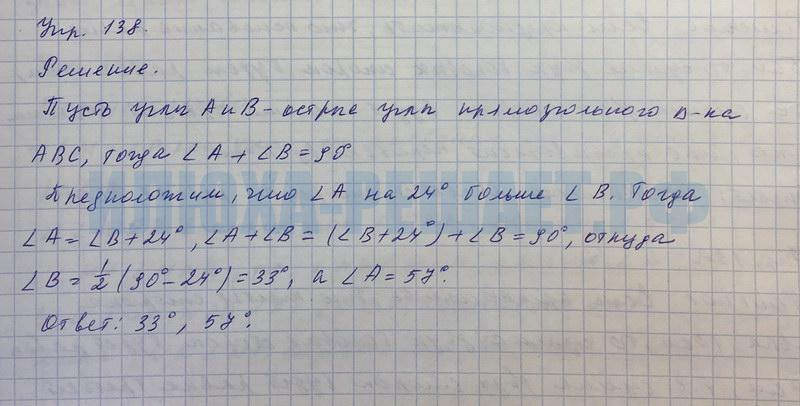 Упр. 138.
Решение.
Пусть углы А и В - острые углы прямоугольного Δ-ка
АВС, тогда ∠A + ∠B = 90°
Предположим, что ∠A на 24° больше ∠B. Тогда
∠A = ∠B + 24°, ∠A + ∠B = (∠B + 24°) + ∠B = 90°, откуда
∠B = 1/2 (90° - 24°) = 33°, а ∠A = 57°.
Ответ: 33°, 57°.
ИЛЮХА-РЕШАЕТ.РФ